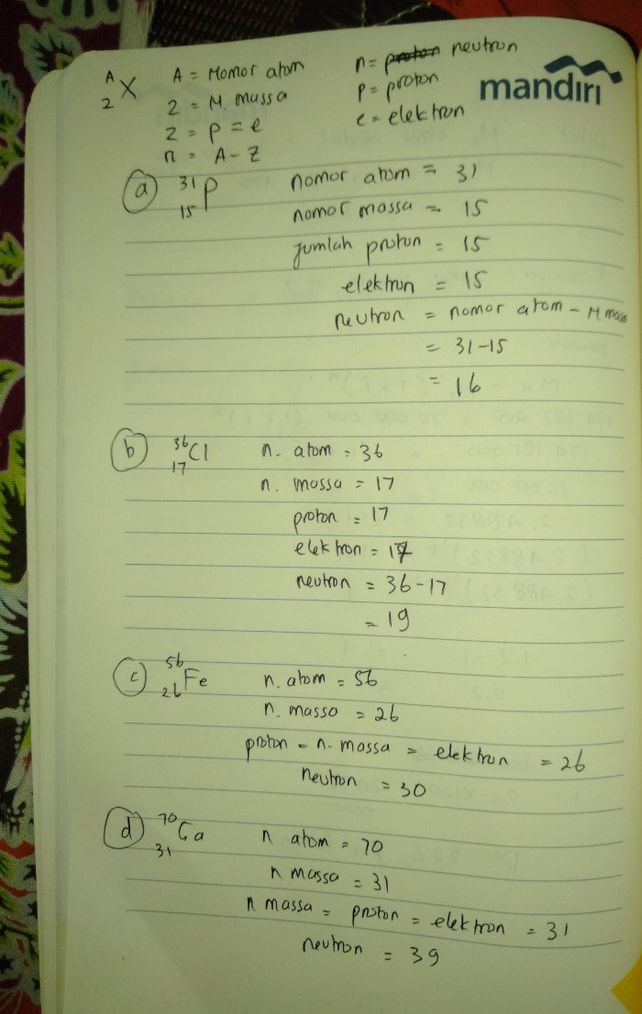 A
Z X
A = Nomor atom
Z = N. massa
Z = p = e
n = A-Z
n = proton neutron
p = proton
e = elektron
mandiri
a 31 15 P nomor atom = 31
nomor massa = 15
jumlah proton = 15
elektron = 15
neutron = nomor atom - N mass
= 31-15
= 16
b 36 17 Cl n. atom = 36
n. massa = 17
proton = 17
elektron = 17
neutron = 36-17
= 19
c 56 26 Fe n. atom = 56
n. massa = 26
proton = n. massa = elektron = 26
neutron = 30
d 70 31 Ga n atom = 70
n massa = 31
n massa = proton = elektron = 31
neutron = 39